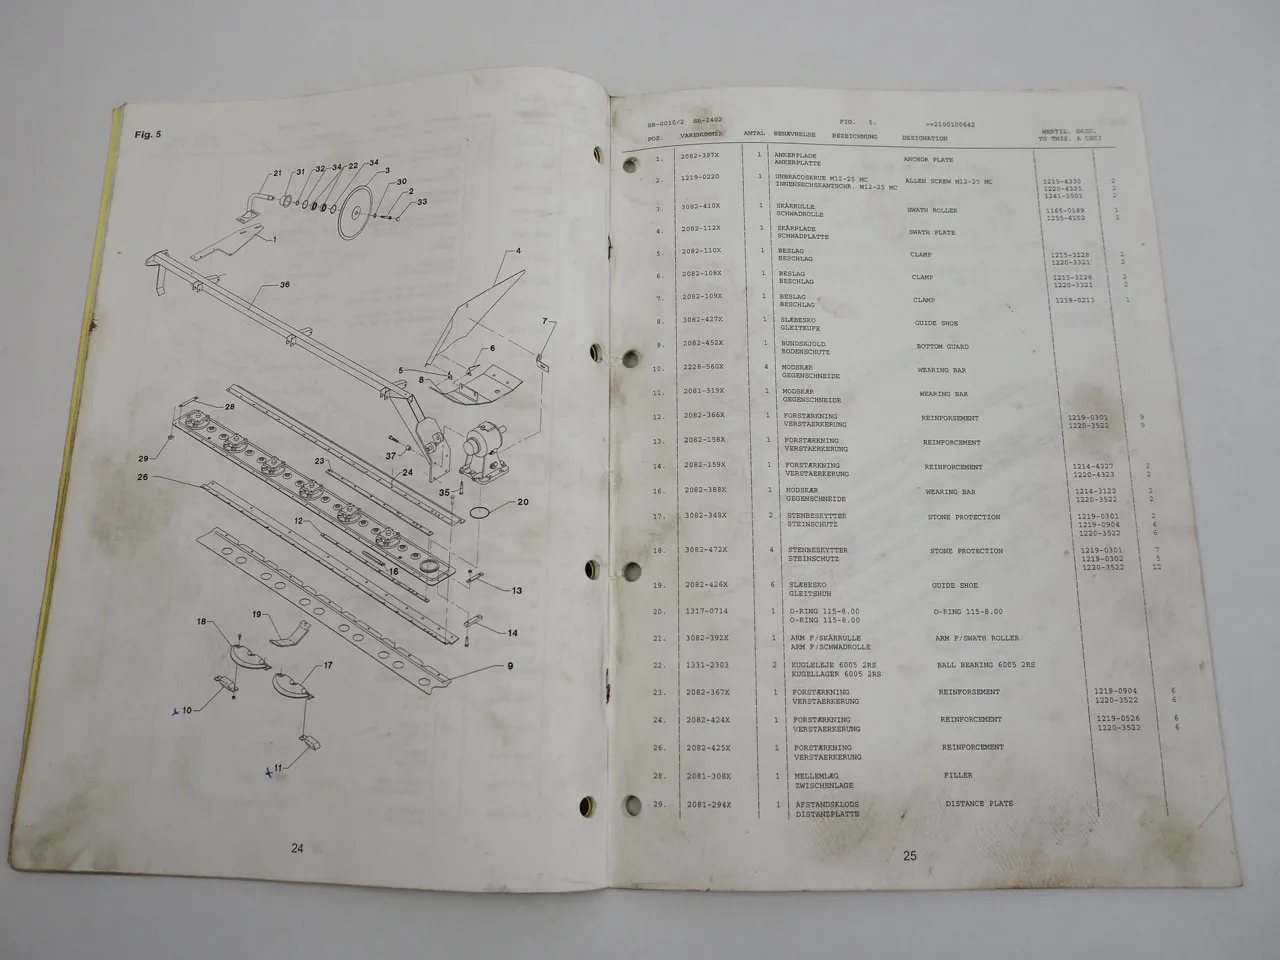 Fig. 5
21
31
32
34
22
34
3
30
2
33
1
36
4
7
6
5
8
28
29
26
23
37
24
35
20
12
16
13
14
19
18
17
9
10
11
24
SB-0010/2 SB-2402 FIG. 5.
POZ. VARENUMMER ANTAL BENÆVNELSE BEZEICHNUNG DESIGNATION TO THIS. A CECI
1. 2082-397X 1 ANKERPLADE ANCHOR PLATE
ANKERPLATTE
2. 1219-0220 1 UNBRACOSKRUE M12-25 MC ALLEN SCREW M12-25 MC 1215-4330 2
INNENSECHSKANTSCHR. M12-25 MC 1220-4321 2
1241-3501 2
3. 3082-410X 1 SKÅRRULLE SWATH ROLLER 1165-0189 1
SCHWADROLLE 1215-4102 2
4. 2082-112X 1 SKÅRPLADE SWATH PLATE
SCHWADPLATTE
5. 2082-110X 1 BESLAG CLAMP 1215-3228 2
BESCHLAG 1220-3321 2
6. 2082-108X 1 BESLAG CLAMP 1215-3228 2
BESCHLAG 1220-3321 2
7. 2082-109X 1 BESLAG CLAMP 1219-0213 1
BESCHLAG
8. 3082-427X 1 SLÆBESKO GUIDE SHOE
GLEITKUFE
9. 2082-452X 1 BUNDSKJOLD BOTTOM GUARD
BODENSCHUTZ
10. 2228-560X 4 MODSKÆR WEARING BAR
GEGENSCHNEIDE
11. 2081-319X 1 MODSKÆR WEARING BAR
GEGENSCHNEIDE
12. 2082-366X 1 FORSTÆRKNING REINFORSEMENT 1219-0301 9
VERSTAERKERUNG 1220-3522 9
13. 2082-158X 1 FORSTÆRKNING REINFORCEMENT
VERSTAERKERUNG
14. 2082-159X 1 FORSTÆRKNING REINFORCEMENT 1214-4327 2
VERSTAERKERUNG 1220-4323 2
16. 2082-388X 1 MODSKÆR WEARING BAR 1214-3122 2
GEGENSCHNEIDE 1220-3522 2
17. 3082-348X 2 STENBESKYTTER STONE PROTECTION 1219-0301 2
STEINSCHUTZ 1219-0904 4
1220-3522 6
18. 3082-472X 4 STENBESKYTTER STONE PROTECTION 1219-0301 7
STEINSCHUTZ 1219-0302 5
1220-3522 12
19. 2082-426X 6 SLÆBESKO GUIDE SHOE
GLEITSHUH
20. 1317-0714 1 O-RING 115-8.00 O-RING 115-8.00
O-RING 115-8.00
21. 3082-392X 1 ARM F/SKÅRRULLE ARM F/SWATH ROLLER
ARM F/SCHWADROLLE
22. 1331-2303 2 KUGLELEJE 6005 2RS BALL BEARING 6005 2RS
KUGELLAGER 6005 2RS
23. 2082-367X 1 FORSTÆRKNING REINFORSEMENT 1219-0904 6
VERSTAERKERUNG 1220-3522 6
24. 2082-424X 1 FORSTÆRKNING REINFORCEMENT 1219-0526 6
VERSTAERKERUNG 1220-3522 6
26. 2082-425X 1 FORSTÆRKNING REINFORCEMENT
VERSTAERKERUNG
28. 2081-308X 1 MELLEMLÆG FILLER
ZWISCHENLAGE
29. 2081-294X 1 AFSTANDSKLODS DISTANCE PLATE
DISTANZPLATTE
25